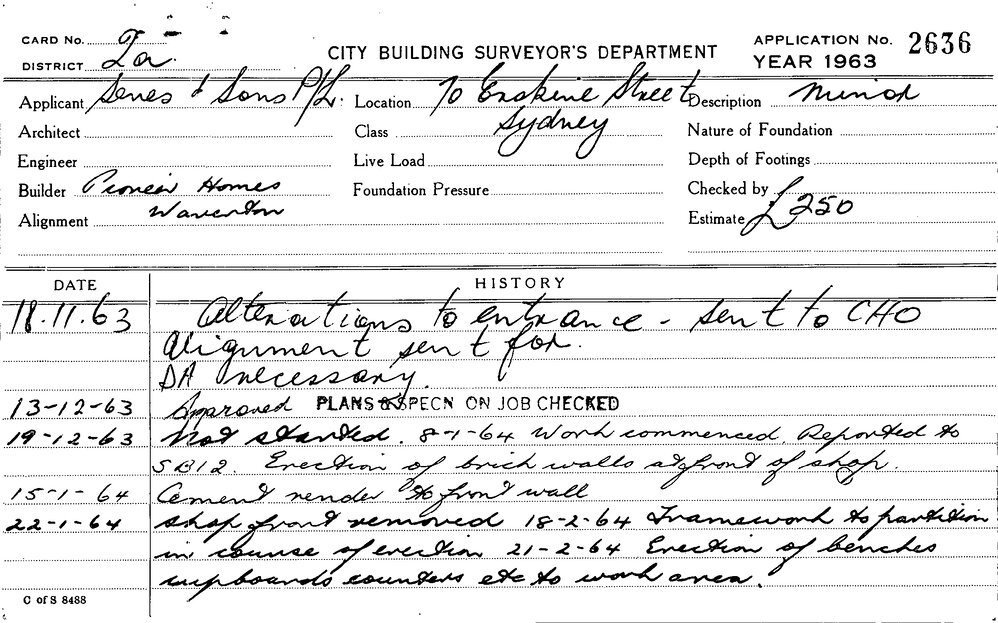 CARD No. 2a
DISTRICT 2a.
CITY BUILDING SURVEYOR'S DEPARTMENT
APPLICATION No. 2636
YEAR 1963
Applicant & Sons P/L. Location 70 Erskine Street Description Minor
Architect Class Sydney Nature of Foundation
Engineer Live Load Depth of Footings
Builder Pioneer Homes Foundation Pressure Checked by
Alignment Waverton Estimate £250
DATE HISTORY
18.11.63 Alterations to entrance - sent to CHO
Alignment sent for.
DA necessary.
13-12-63 Approved PLANS & SPECN ON JOB CHECKED
19-12-63 Not started. 8-1-64 Work commenced. Reported to
SB12. Erection of brick walls at front of shop.
15-1-64 Cement render to front wall
22-1-64 shop front removed 18-2-64 Framework to partition
in course of erection 21-2-64 Erection of benches
cupboards counters etc to work area.
C of S 8488